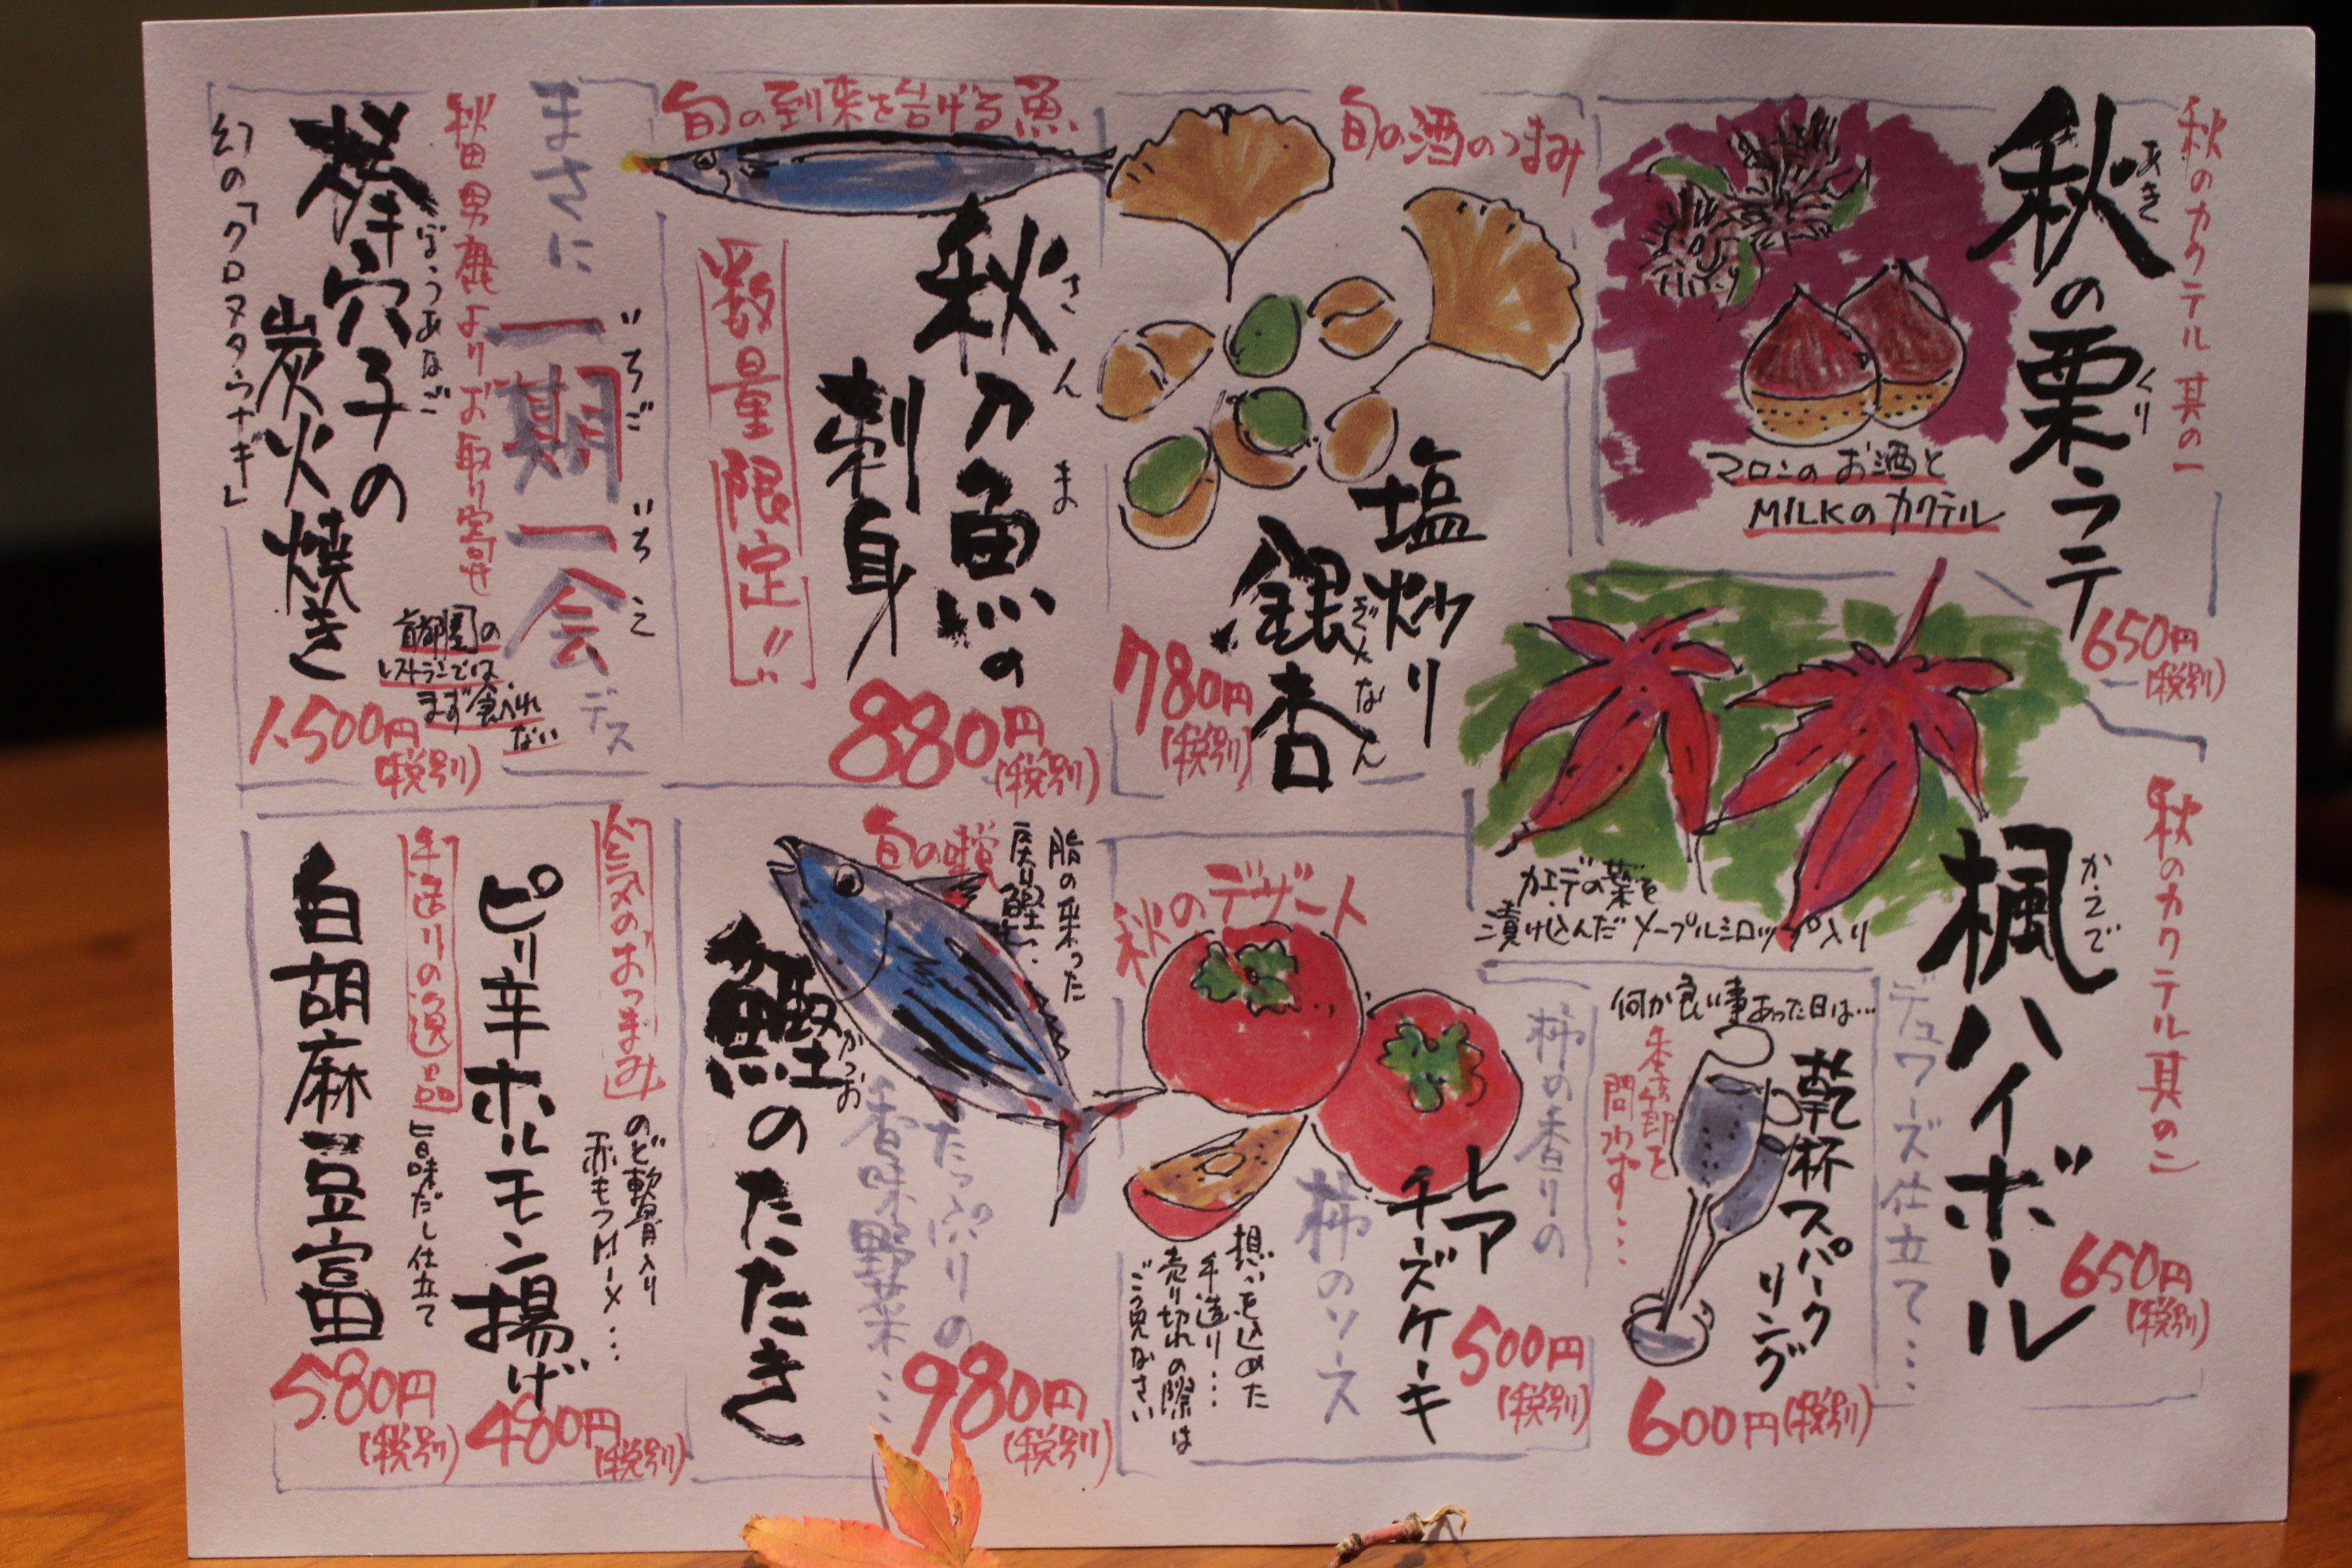 秋のカクテル 其の一
秋の栗ラテ
あき
くり
マロンのお酒と
MILKのカクテル
650円
(税別)
旬の酒のつまみ
塩炒り
銀杏
ぎんなん
780円
(税別)
旬の到来を告げる魚
秋刀魚の
さんま
刺身
数量限定!!
880円
(税別)
まさに
一期一会デス
いちごいちえ
秋田男鹿よりお取り寄せ
棒穴子の
ぼうあなご
炭火焼き
幻の「クロヌタウナギ」
首都圏の
レストランでは
まず食べれ
ない
1.500円
(税別)
秋のカクテル 其の二
楓ハイボール
かえで
カエデの葉を
漬け込んだメープルシロップ入り
デュワーズ仕立て…
650円
(税別)
何か良い事あった日は…
乾杯スパーク
リング
季節を
問わず…
600円(税別)
秋のデザート
柿の香りの
レア
チーズケーキ
柿のソース
想いを込めた
手造り…
売り切れの際は
ごう免なさい
500円
(税別)
脂の乗った
戻り鰹を…
旬の
鰹のたたき
かつお
たっぷりの
香味野菜…
980円
(税別)
人気のおつまみ
のど軟骨入り
赤もつメーメ…
ピリ辛ホルモン揚げ
480円
(税別)
手造りの逸品
旨味だし仕立て
白胡麻豆富
580円
(税別)